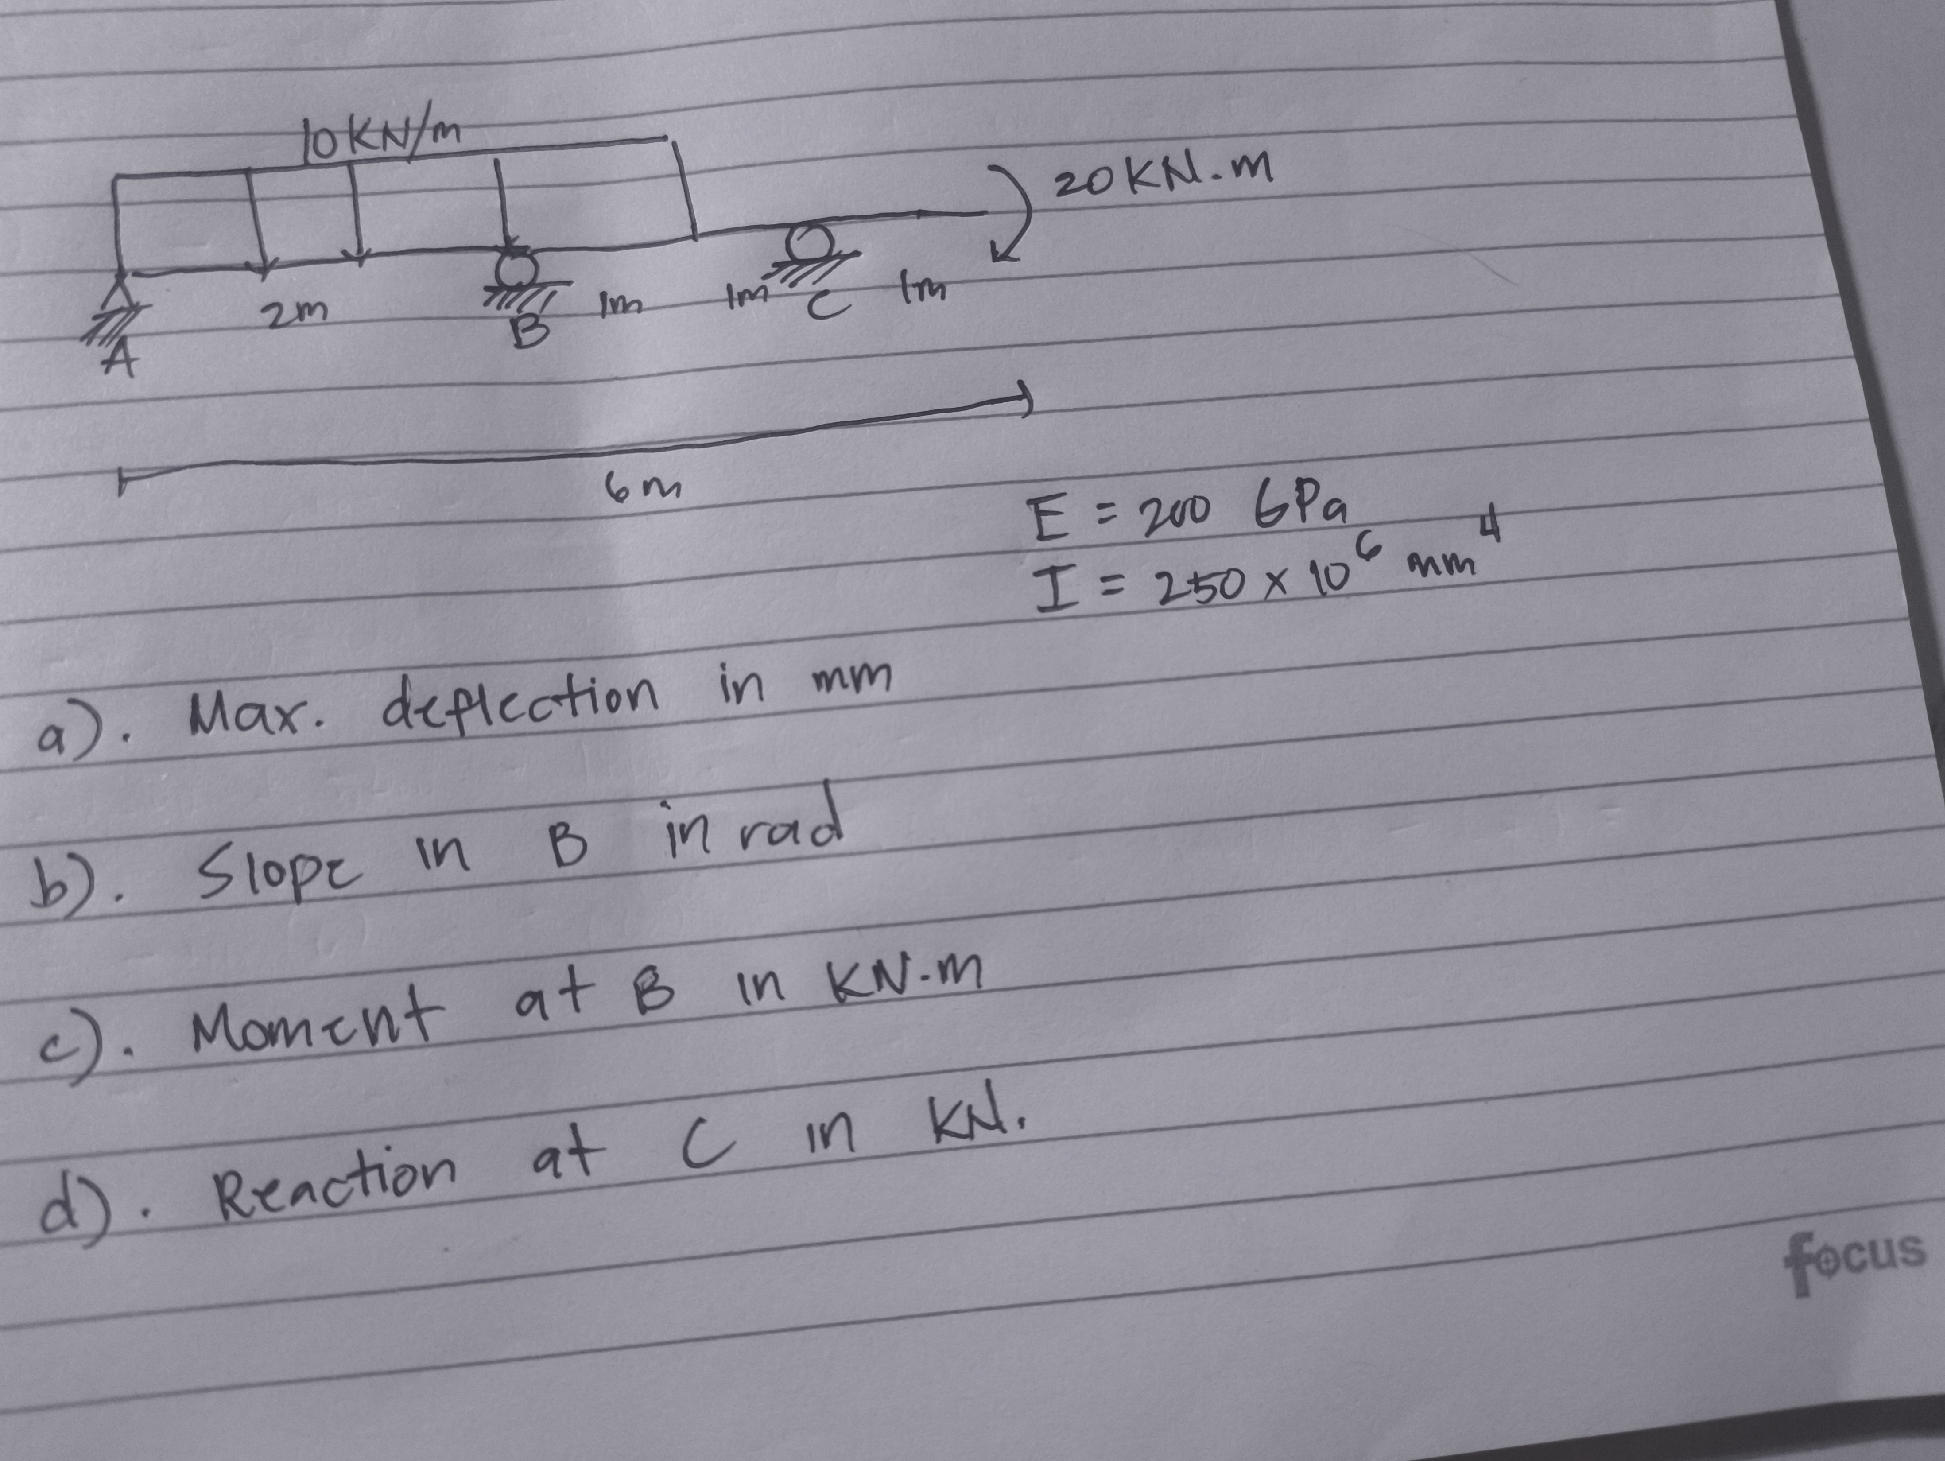 10KN/m
20KN.m
2m
1m
1m
1m
A
B
C
6m
E = 200 GPa
I = 250 x 10⁶ mm⁴
a). Max. deflection in mm
b). Slope in B in rad
c). Moment at B in KN-m
d). Reaction at C in KN.
focus